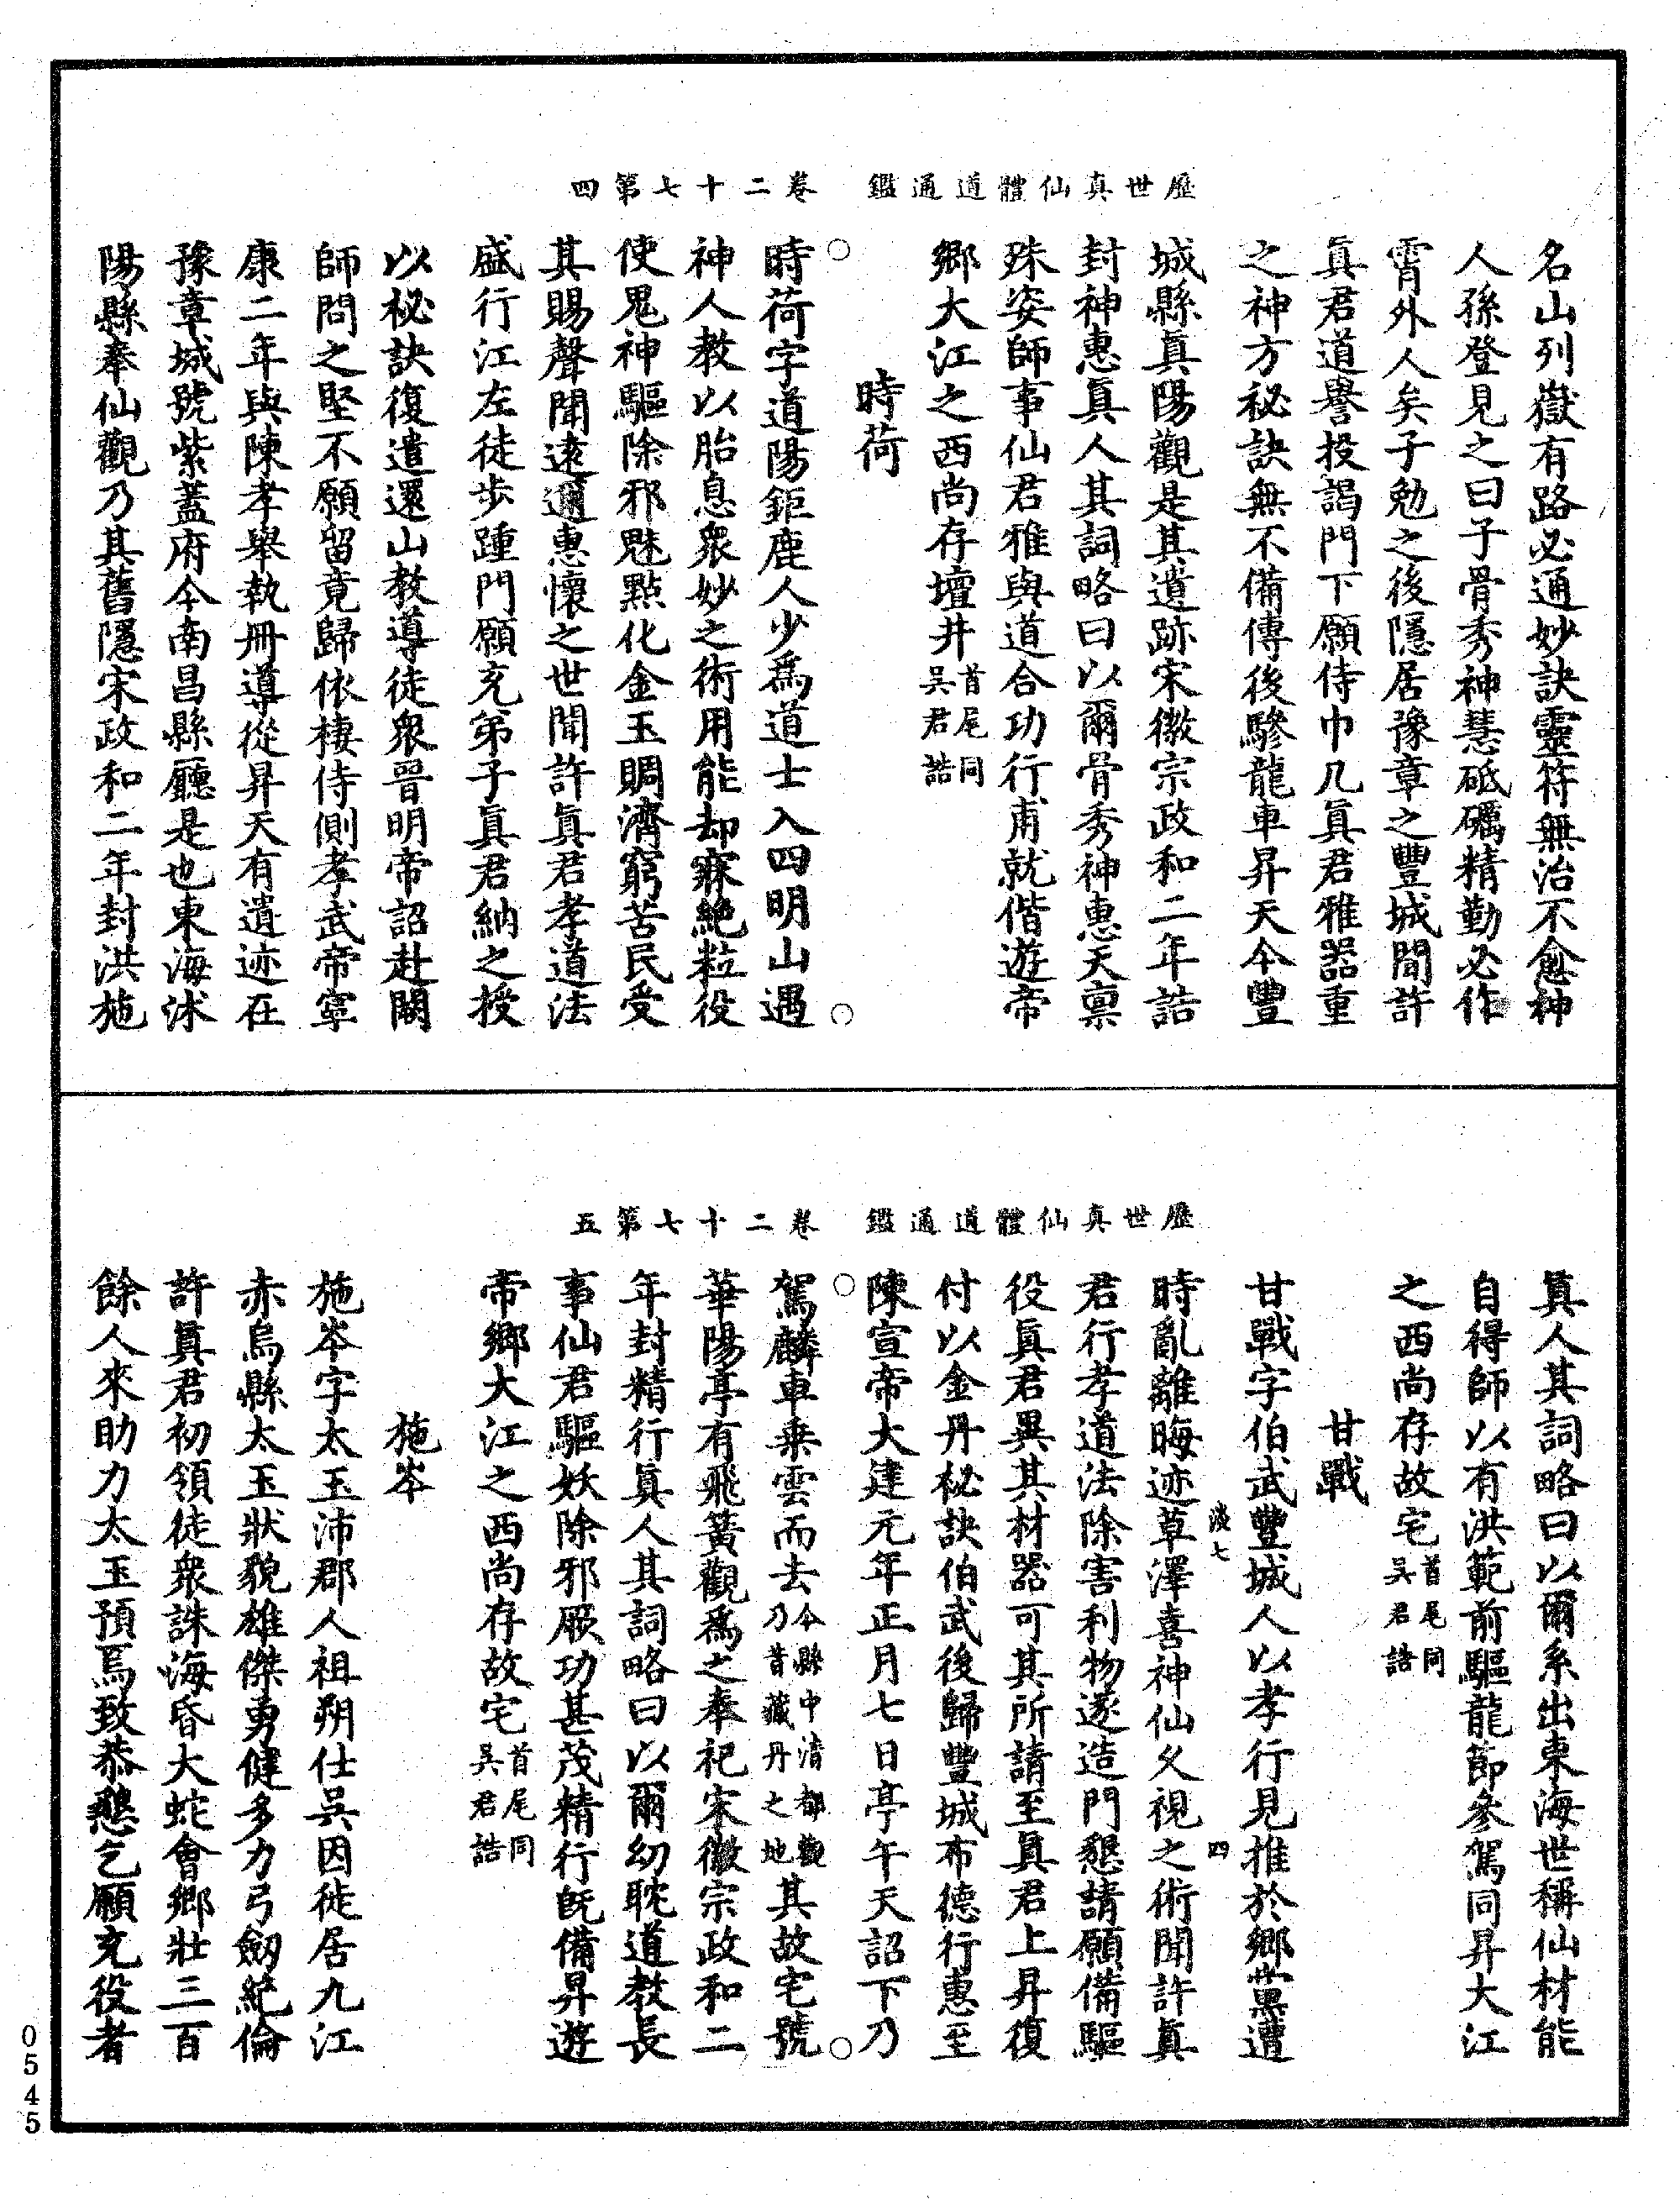 歷世真仙體道通鑑　卷二十七第四
名山列嶽有路必通妙訣靈符無治不愈神
人孫登見之曰子骨秀神慧砥礪精勤必作
霄外人矣子勉之後隱居豫章之豐城間許
眞君道譽投謁門下願侍巾几眞君雅器重
之神方秘訣無不備傳後驂龍車昇天今豐
城縣眞陽觀是其遺跡宋徽宗政和二年誥
封神惠眞人其詞略曰以爾骨秀神惠天禀
殊姿師事仙君雅與道合功行甫就偕遊帝
鄉大江之西尚存壇井首尾同吳君誥
時荷
時荷字道陽鉅鹿人少爲道士入四明山遇
神人教以胎息衆妙之術用能却寐絶粒役
使鬼神驅除邪魅點化金玉賙濟窮苦民受
其賜聲聞遠邇惠懷之世聞許眞君孝道法
盛行江左徒步踵門願充弟子眞君納之授
以秘訣復遣還山教導徒衆晉明帝詔赴闕
師問之堅不願留竟歸依棲侍側孝武帝寧
康二年與陳孝舉執冊導從昇天有遺迹在
豫章城號紫蓋府今南昌縣廳是也東海沭
陽縣奉仙觀乃其舊隱宋政和二年封洪施
歷世真仙體道通鑑　卷二十七第五
眞人其詞略曰以爾系出東海世稱仙材能
自得師以有洪範前驅龍節參駕同昇大江
之西尚存故宅首尾同吳君誥
甘戰
甘戰字伯武豐城人以孝行見推於鄉黨遭
淡七　四
時亂離晦迹草澤喜神仙久視之術聞許眞
君行孝道法除害利物遂造門懇請願備驅
役眞君異其材器可其所請至眞君上昇復
付以金丹秘訣伯武後歸豐城布德行惠至
陳宣帝大建元年正月七日亭午天詔下乃
駕麟車乗雲而去今縣中清都觀乃昔藏丹之地其故宅號
華陽亭有飛簧觀爲之奉祀宋徽宗政和二
年封精行眞人其詞略曰以爾幼耽道教長
事仙君驅妖除邪厥功甚茂精行旣備昇遊
帝鄉大江之西尚存故宅首尾同吳君誥
施岑
施岑字太玉沛郡人祖朔仕吳因徙居九江
赤烏縣太玉狀貌雄傑勇健多力弓劒絶倫
許眞君初領徒衆誅海昏大蛇會鄉壯三百
餘人來助力太玉預焉致恭懇乞願充役者
0545